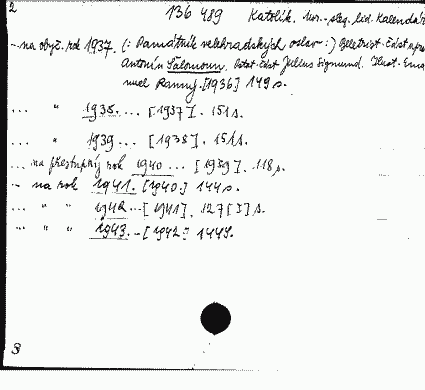 2 136 489 Katolík. mor.-slez. lid. Kalendář
– na obyč. rok 1937. (: Památník velehradských oslav :) Beletrist. část upra
Antonín Šalomoun. Ostat. část Julius Sigmund. Ilust. Ema
nuel Ranný. [1936] 149 s.
... " 1938. ... [1937]. 151 s.
... " 1939 ... [1938]. 151 s.
... na přestupný rok 1940 ... [1939]. 118 s.
– na rok 1941. [1940.] 144 s.
... " " 1942 ... [1941]. 127 [1] s.
... " " 1943. – [1942.] 144 s.